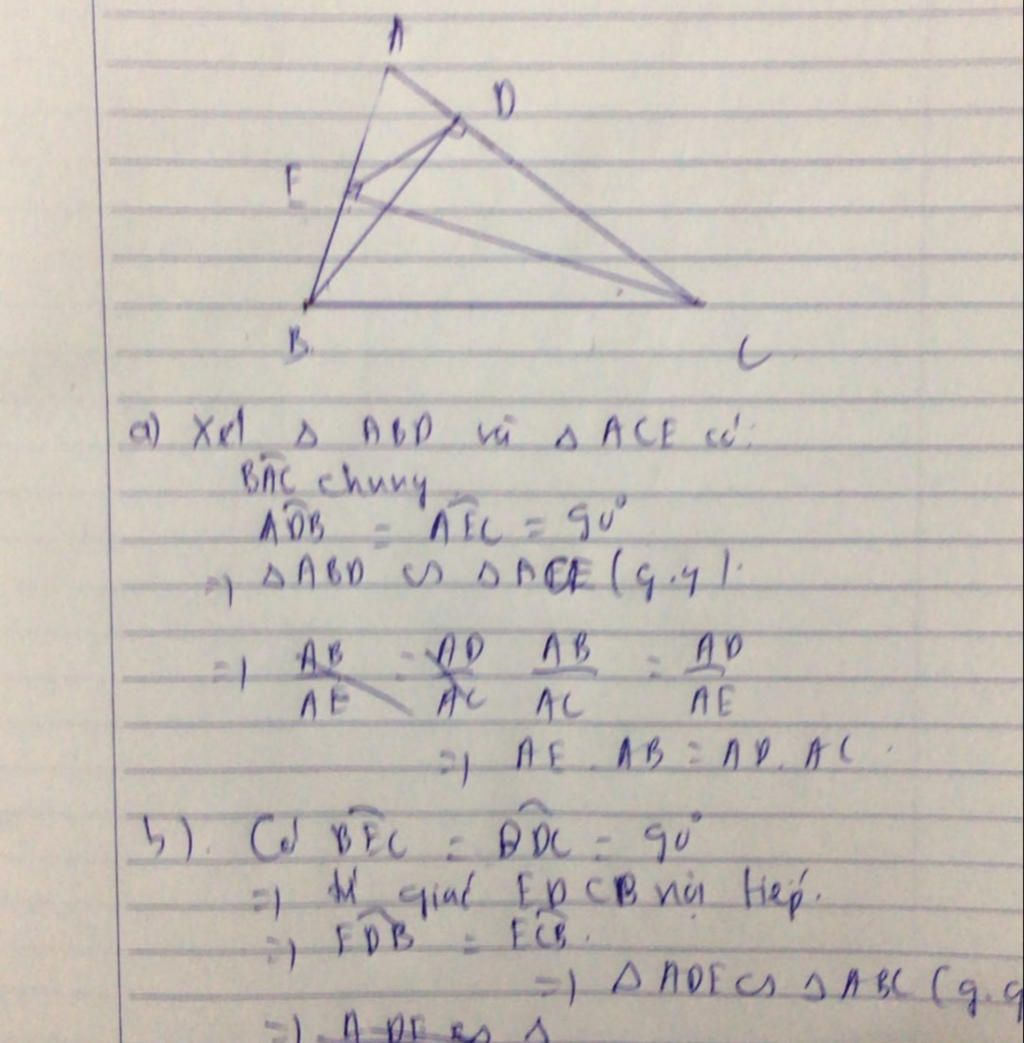 A
D
E
B
C
a) Xét Δ ABD và Δ ACE có:
BAC chung
ADB = AEC = 90°
=> ΔABD ∽ ΔACE (g.g).
=> AB/AE = AD/AC AB/AC = AD/AE
=> AE . AB = AD . AC .
b). Có BEC = BDC = 90°
=> tứ giác EDCB nội tiếp.
=> EDB = ECB.
=> ΔADE ∽ ΔABC (g.g
=> A DE ∽ Δ